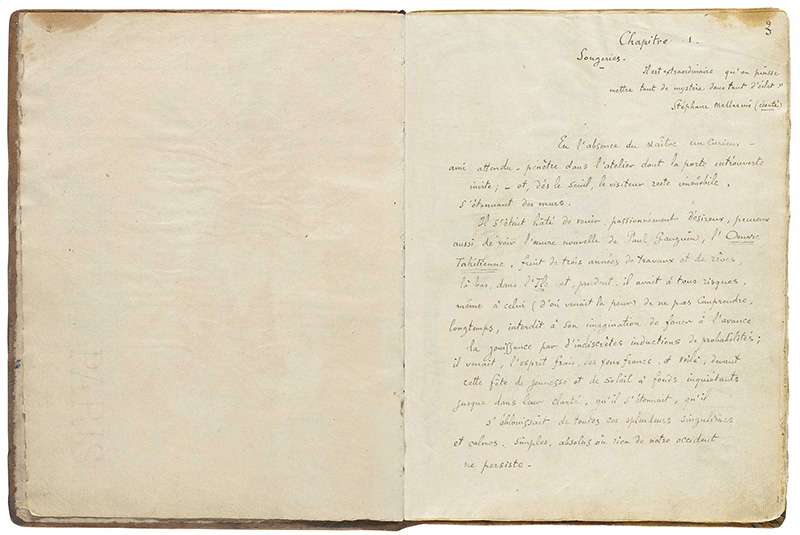 3
Chapitre 1.
Songeries.
Il est extraordinaire qu'on puisse
mettre tant de mystère dans tant d'éclat,"
Stéphane Mallarmé
En l'absence du Maître un Curieux -
ami attendu - pénètre dans l'atelier dont la porte entrouverte
invite; - et, dès le seuil, le visiteur reste immobile,
s'étonnant des murs.
Il s'était hâté de venir, passionnément désireux, peureux
aussi de voir l'œuvre nouvelle de Paul Gauguin, l'Oeuvre
Tahitienne, fruit de trois années de travaux et de rêves,
là bas, dans l'Ile et, prudent, il avait à tous risques,
même à celui (d'où venait la peur) de ne pas Comprendre,
longtemps, interdit à son imagination de faner à l'avance
la jouissance par d'indiscrètes inductions de probabilités;
il venait, l'esprit frais, les yeux francs, et voilà, devant
cette fête de jeunesse et de soleil à fonds inquiétants
jusque dans leur clarté, qu'il s'étonnait, qu'il
s'éblouissait de toutes ces splendeurs singulières
et calmes, simples, absolus où rien de notre occident
ne persiste -